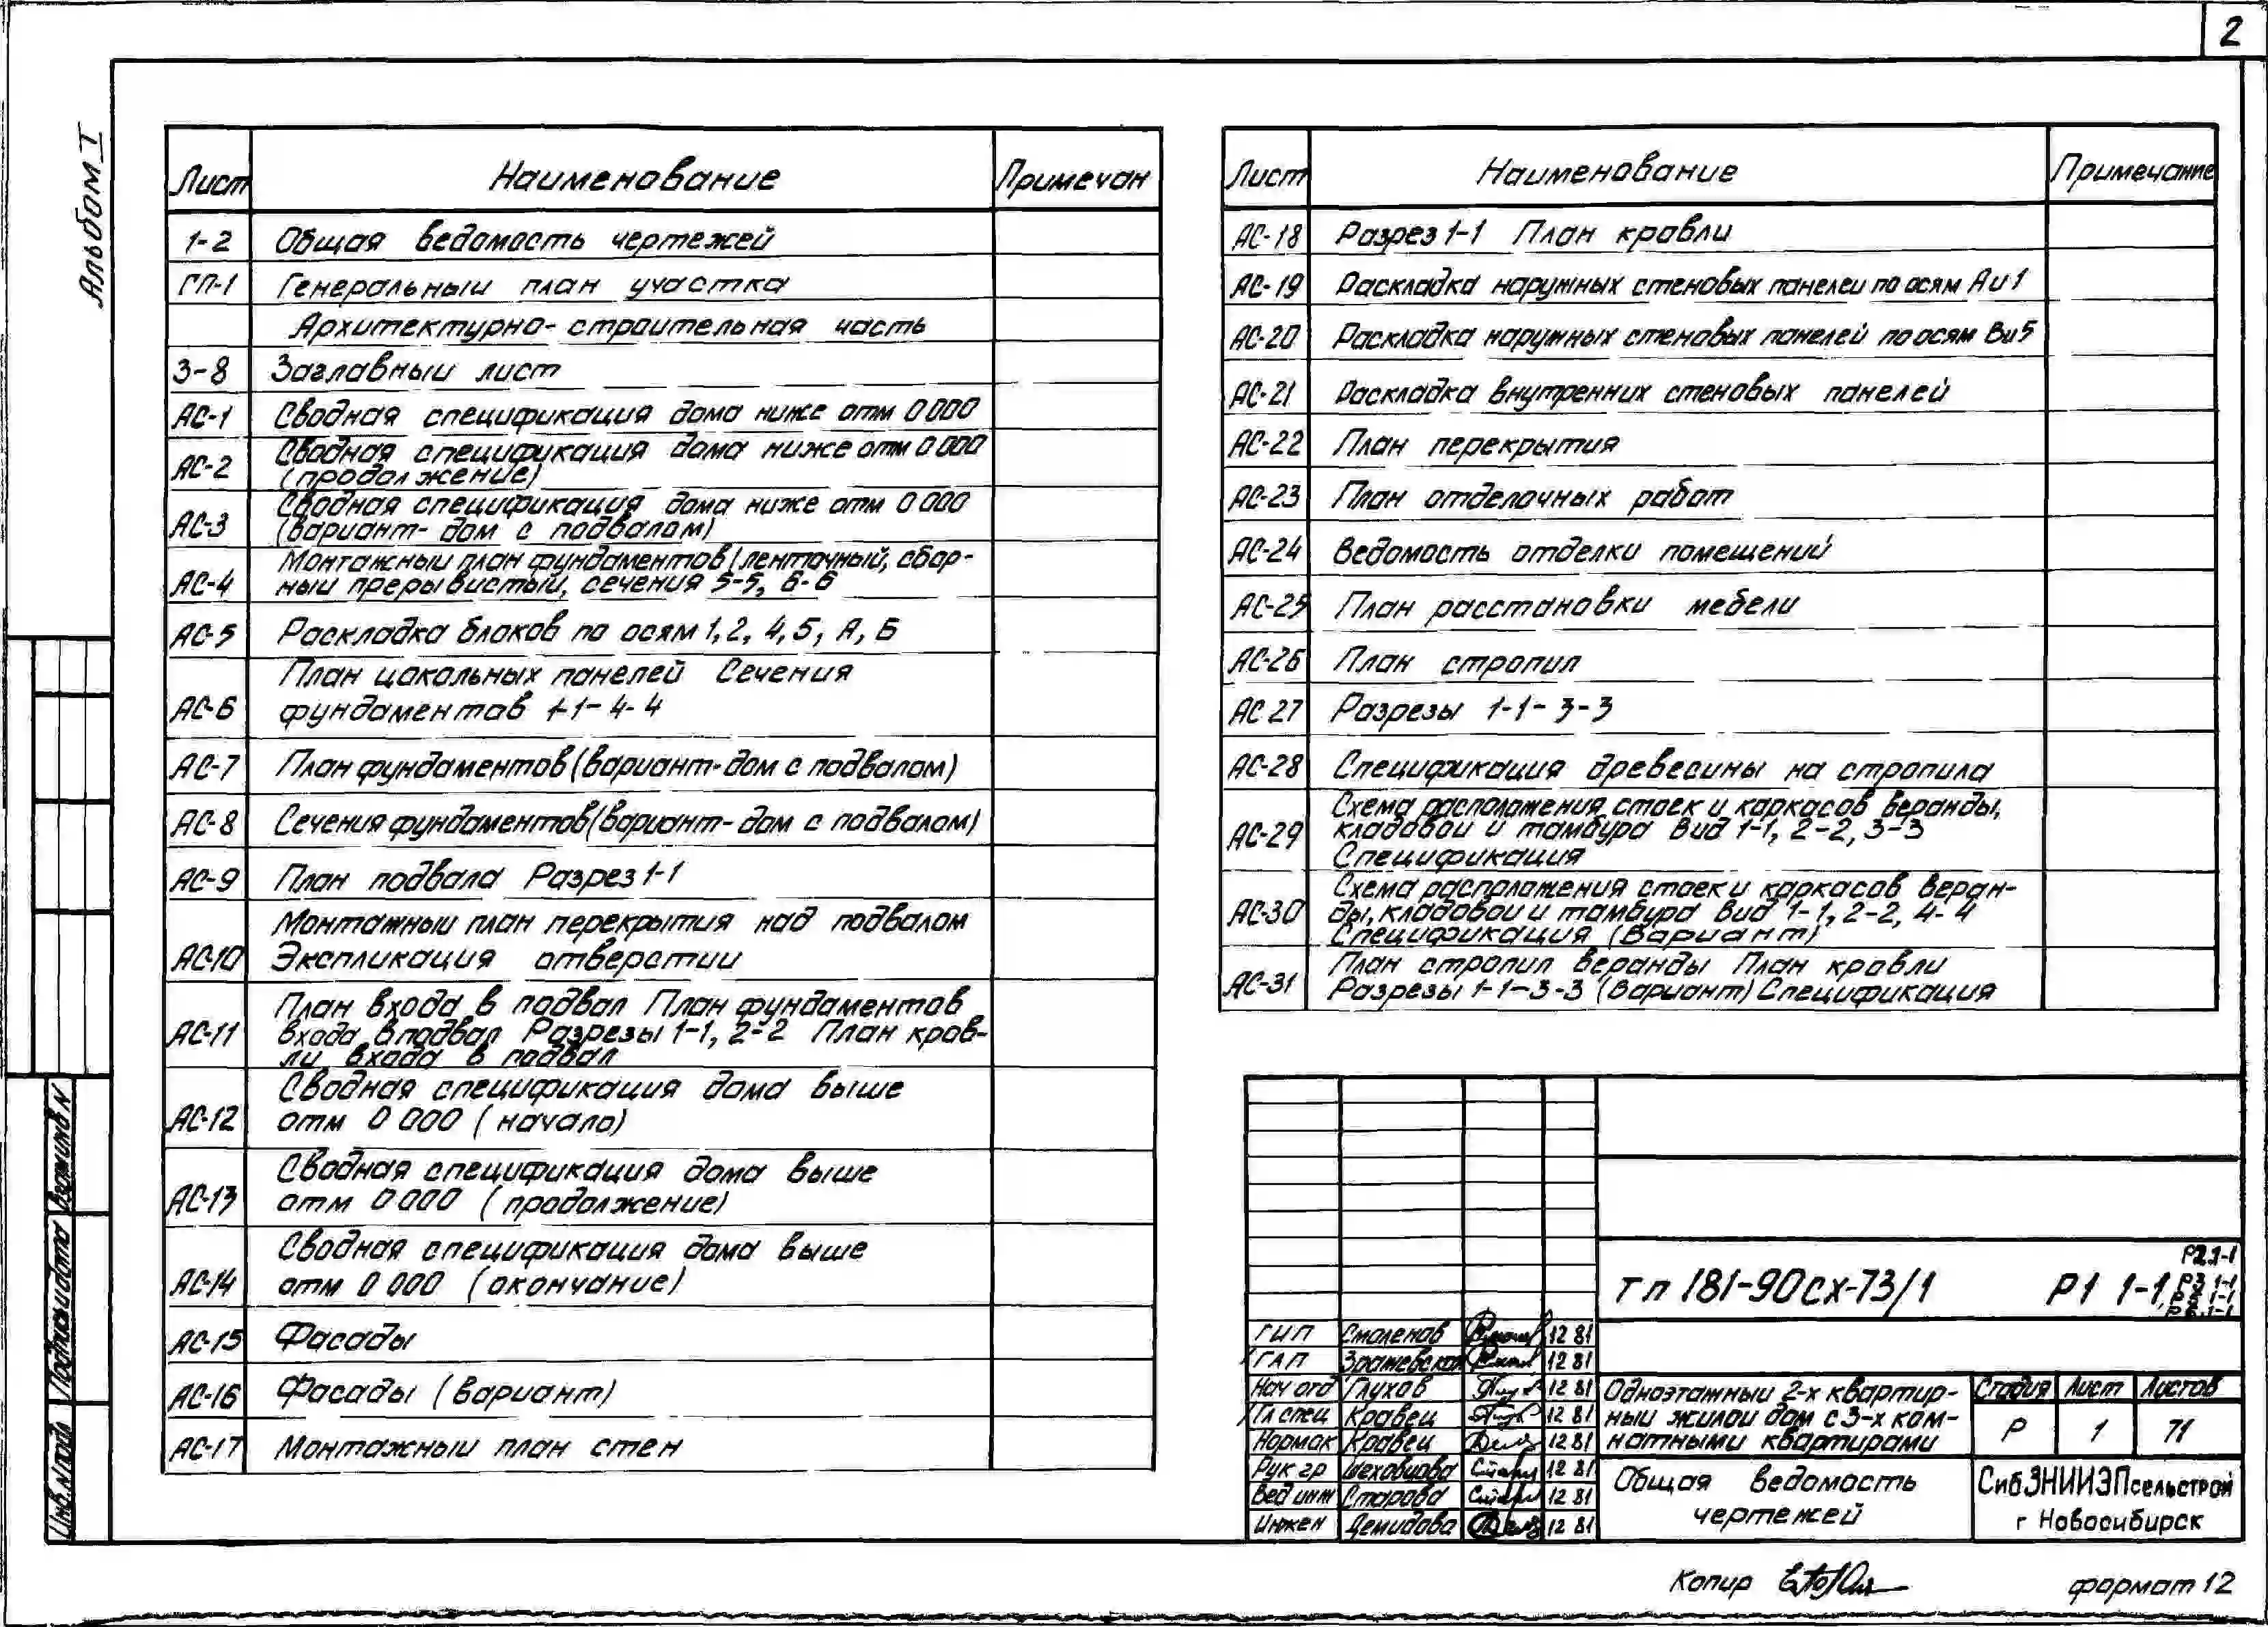 2
Альбом I
Лист Наименование Примечан
1-2 Общая ведомость чертежей
ГП-1 Генеральный план участка
Архитектурно-строительная часть
3-8 Заглавный лист
АС-1 Сводная спецификация дома ниже отм 0 000
АС-2 Сводная спецификация дома ниже отм 0 000
(продолжение)
АС-3 Сводная спецификация дома ниже отм 0 000
(вариант- дом с подвалом)
АС-4 Монтажный план фундаментов (ленточный, сбор-
ный прерывистый, сечения 5-5, 6-6
АС-5 Раскладка блоков по осям 1, 2, 4, 5, А, Б
АС-6 План цокольных панелей Сечения
фундаментов 1-1- 4-4
АС-7 План фундаментов (вариант-дом с подвалом)
АС-8 Сечения фундаментов (вариант- дом с подвалом)
АС-9 План подвала Разрез 1-1
АС-10 Монтажный план перекрытия над подвалом
Экспликация отверстии
АС-11 План входа в подвал План фундаментов
входа в подвал Разрезы 1-1, 2-2 План кров-
ли входа в подвал
АС-12 Сводная спецификация дома выше
отм 0 000 (начало)
АС-13 Сводная спецификация дома выше
отм 0 000 (продолжение)
АС-14 Сводная спецификация дома выше
отм 0 000 (окончание)
АС-15 Фасады
АС-16 Фасады (вариант)
АС-17 Монтажный план стен
Лист Наименование Примечание
АС-18 Разрез 1-1 План кровли
АС-19 Раскладка наружных стеновых панелей по осям А и 1
АС-20 Раскладка наружных стеновых панелей по осям В и 5
АС-21 Раскладка внутренних стеновых панелей
АС-22 План перекрытия
АС-23 План отделочных работ
АС-24 Ведомость отделки помещений
АС-25 План расстановки мебели
АС-26 План стропил
АС 27 Разрезы 1-1- 3-3
АС-28 Спецификация древесины на стропила
АС-29 Схема расположения стоек и каркасов веранды,
кладовой и тамбура Вид 1-1, 2-2, 3-3
Спецификация
АС-30 Схема расположения стоек и каркасов веран-
ды, кладовой и тамбура Вид 1-1, 2-2, 4-4
Спецификация (Вариант)
АС-31 План стропил веранды План кровли
Разрезы 1-1-3-3 (вариант) Спецификация
тп 181-90сх-73/1 Р1 1-1,
Р2.1-1
Р3 1-1
ГИП Смоленов 12 81
ГАП 12 81
Нач отд Глухов 12 81
Гл спец Кравец 12 81
Нормок Кравец 12 81
Рук гр Шеховцова 12 81
Вед инж Старова 12 81
Инжен Демидова 12 81
Одноэтажный 2-х квартир-
ный жилой дом с 3-х ком-
натными квартирами
Стадия Лист Листов
Р 1 71
Общая ведомость
чертежей
СибЗНИИЭПсельстрой
г Новосибирск
Копир
формат 12
Инв.N подл Подпись и дата Взам инв N